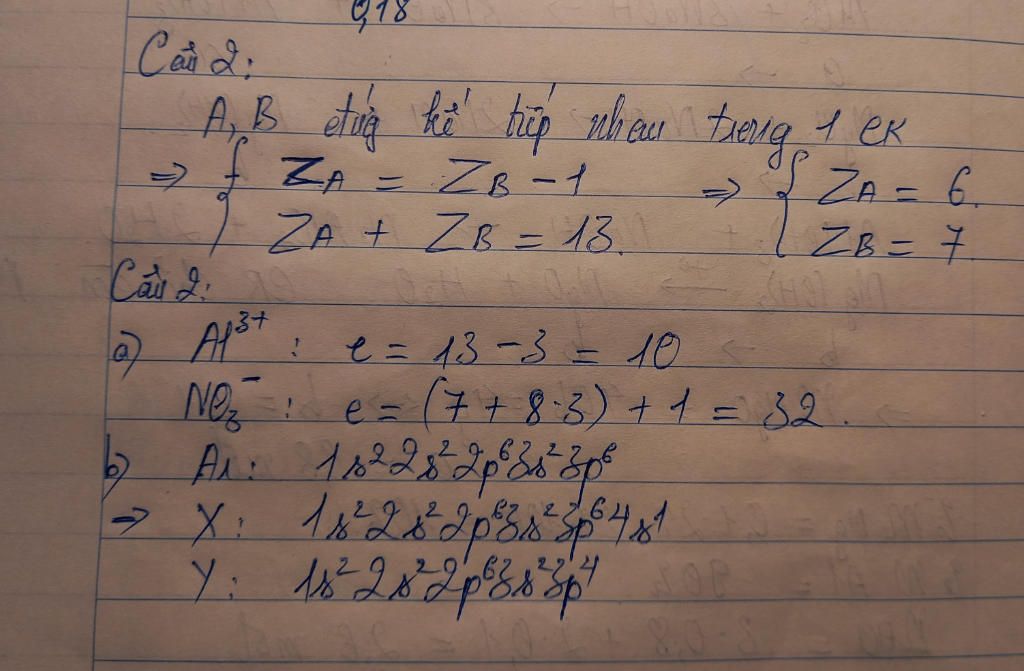 0,18
Câu 2:
A, B đứng kế tiếp nhau trong 1 CK
=> { ZA = ZB - 1 => { ZA = 6.
ZA + ZB = 13. ZB = 7
Câu 2:
a) Al³⁺ : e = 13 - 3 = 10
NO₃⁻ : e = (7 + 8·3) + 1 = 32.
b) Ar: 1s²2s²2p⁶3s²3p⁶
=> X: 1s²2s²2p⁶3s²3p⁶4s¹
Y: 1s²2s²2p⁶3s²3p⁴